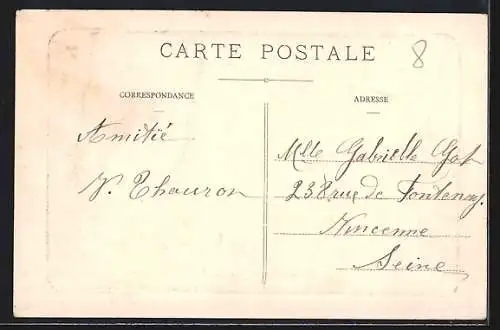 CARTE POSTALE
8
CORRESPONDANCE
ADRESSE
Amitié
Mlle Gabrielle Got
V. Thauron
238 rue de Fontenay.
Vincenne
Seine